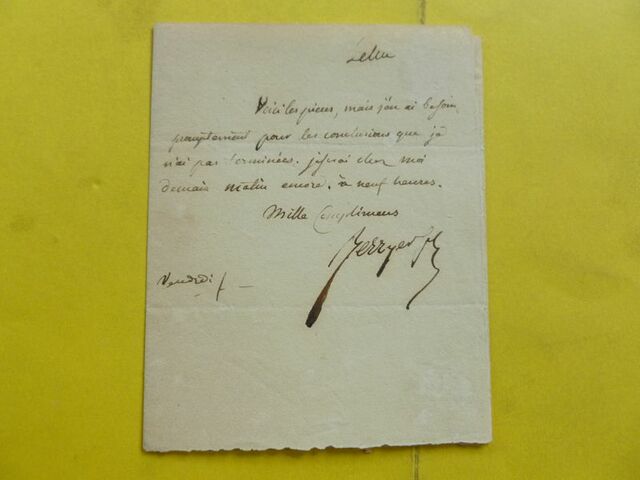 Voici les pièces, mais j'en ai besoin
promptement pour les conclusions que je
n'ai pas terminées. je serai chez moi
demain matin encore. à neuf heures.
Mille Complimens
Berryer fils
Vendredi